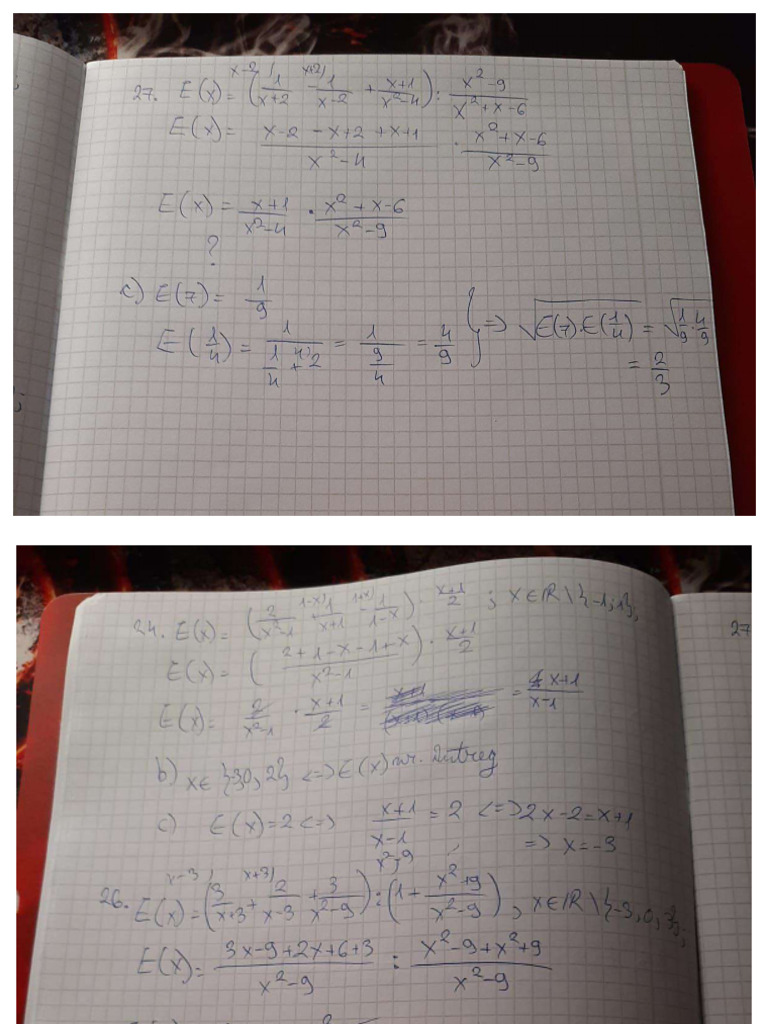 x-2) x+2)
27. E(x) = (1/(x+2) - 1/(x-2) + (x+1)/(x²-4)) : (x²-9)/(x²+x-6)
E(x) = (x-2 -x+2 +x+1)/(x²-4) · (x²+x-6)/(x²-9)
E(x) = (x+1)/(x²-4) · (x²+x-6)/(x²-9)
?
c) E(7) = 1/9
E(1/4) = 1/(1/4 + ⁴⁾2) = 1/(9/4) = 4/9 } => √(E(7)·E(1/4)) = √(1/9·4/9)
= 2/3
1-x) 1+x)
24. E(x) = (2/(x²-1) + 1/(x+1) - 1/(1-x)) · (x+1)/2 ; x∈ℝ\{-1;1};
E(x) = ((2+1-x-1+x)/(x²-1)) · (x+1)/2
E(x) = 2/(x²-1) · (x+1)/2 = = (x+1)/(x-1)
b) x∈{30,2} <=> E(x) nr. întreg
c) E(x)=2 <=> (x+1)/(x-1) = 2 <=> 2x-2=x+1
=> x=-3
x-3) x+3) x²-9
26. E(x) = (3/(x+3) + 2/(x-3) + 3/(x²-9)) : (1 + (x²+9)/(x²-9)), x∈ℝ\{-3,0,3};
E(x) = (3x-9+2x+6+3)/(x²-9) : (x²-9+x²+9)/(x²-9)
27